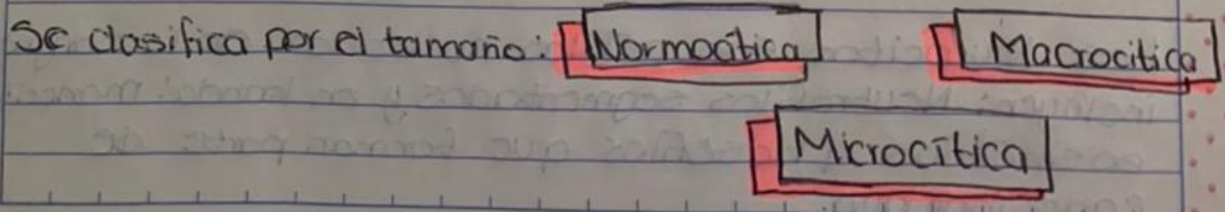 Se clasifica por el tamaño: Normocítica Macrocitica
Microcítica